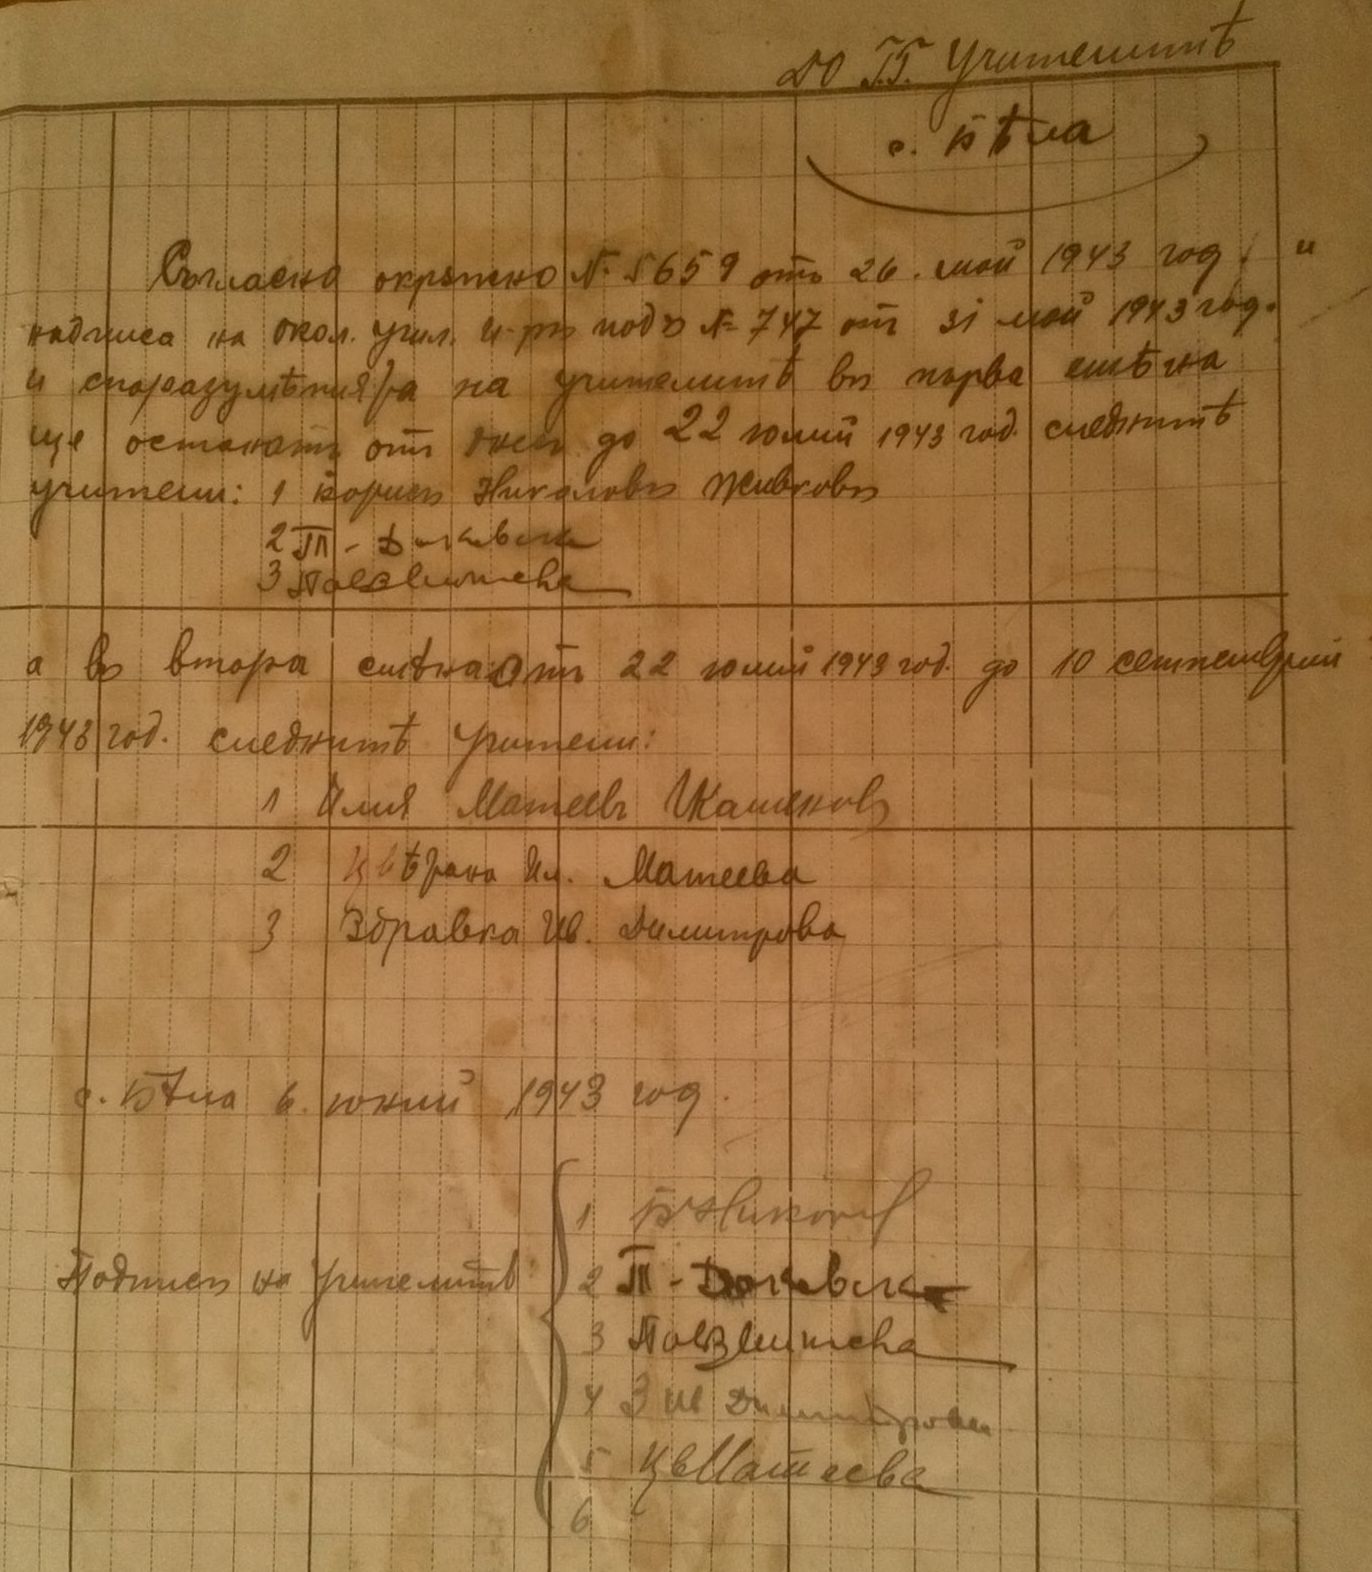 до Г.Г. Учителитѣ
с. Бѣла
Съгласно окръжно № 5659 отъ 26. май 1943 год. и
надписа на окол. учил. и-ръ подъ № 747 от 31 май 1943 год.
и споразумѣнията на учителитѣ въ първа смѣна
ще останатъ от днесъ до 22 юлий 1943 год. следнитѣ
учители: 1 Борисъ Николовъ Живковъ
2 П -
3
а въ втора смѣна отъ 22 юлий 1943 год. до 10 септемврий
1943 год. следнитѣ учители:
1 Илия Матеевъ
2 Цвѣтана Ил. Матеева
3 Здравка Ив. Димитрова
с. Бѣла 6. юний 1943 год.
Подписъ на Учителитѣ
1 Б Николов
2 П -
3
4 З Ив Димитрова
5 Цв Матеева
6